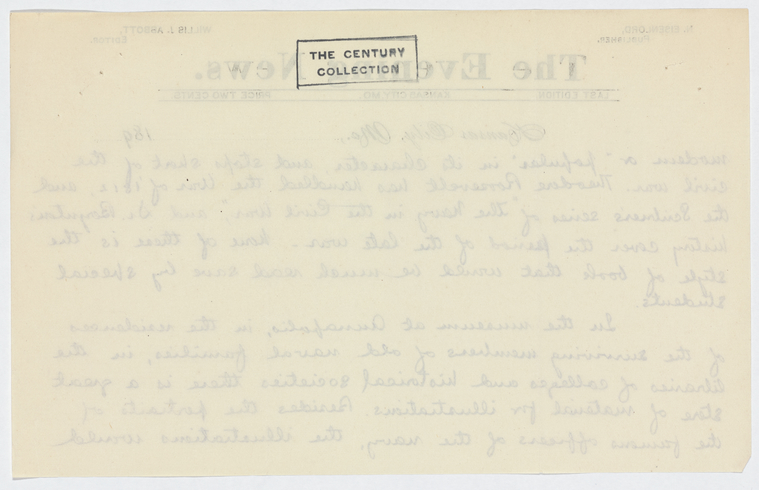 THE CENTURY
COLLECTION
PUBLISHER.
WILLIS J. ABBOTT,
EDITOR.
The Evening News.
LAST EDITION. KANSAS CITY, MO. PRICE TWO CENTS
Kansas City, Mo., 189
modern or "popular" in its character and stops short of the
civil war. Theodore Roosevelt has handled the War of 1812, and
the Scribners series of "The Navy in the Civil War," and Boynton's
history cover the period of the late war. None of these is the
style of book that would be much read save by special
students.
In the museum at Annapolis, in the residences
of the surviving members of old naval families, in the
libraries of colleges and historical societies there is a great
store of material for illustrations. Besides the portraits of
the famous officers of the navy, the illustrations would